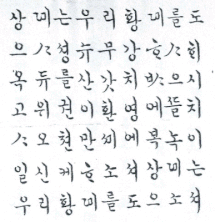 상뎨는우리황뎨를도
으ᄉᆞ셩슈무강ᄒᆞᄉᆞᄒᆡ
옥듀를산갓치ᄡᆞ으시
고위권이환영에ᄯᅥᆯ치
ᄉᆞ오쳔만셰에복녹이
일신케ᄒᆞ소셔상뎨는
우리황뎨를도으소셔